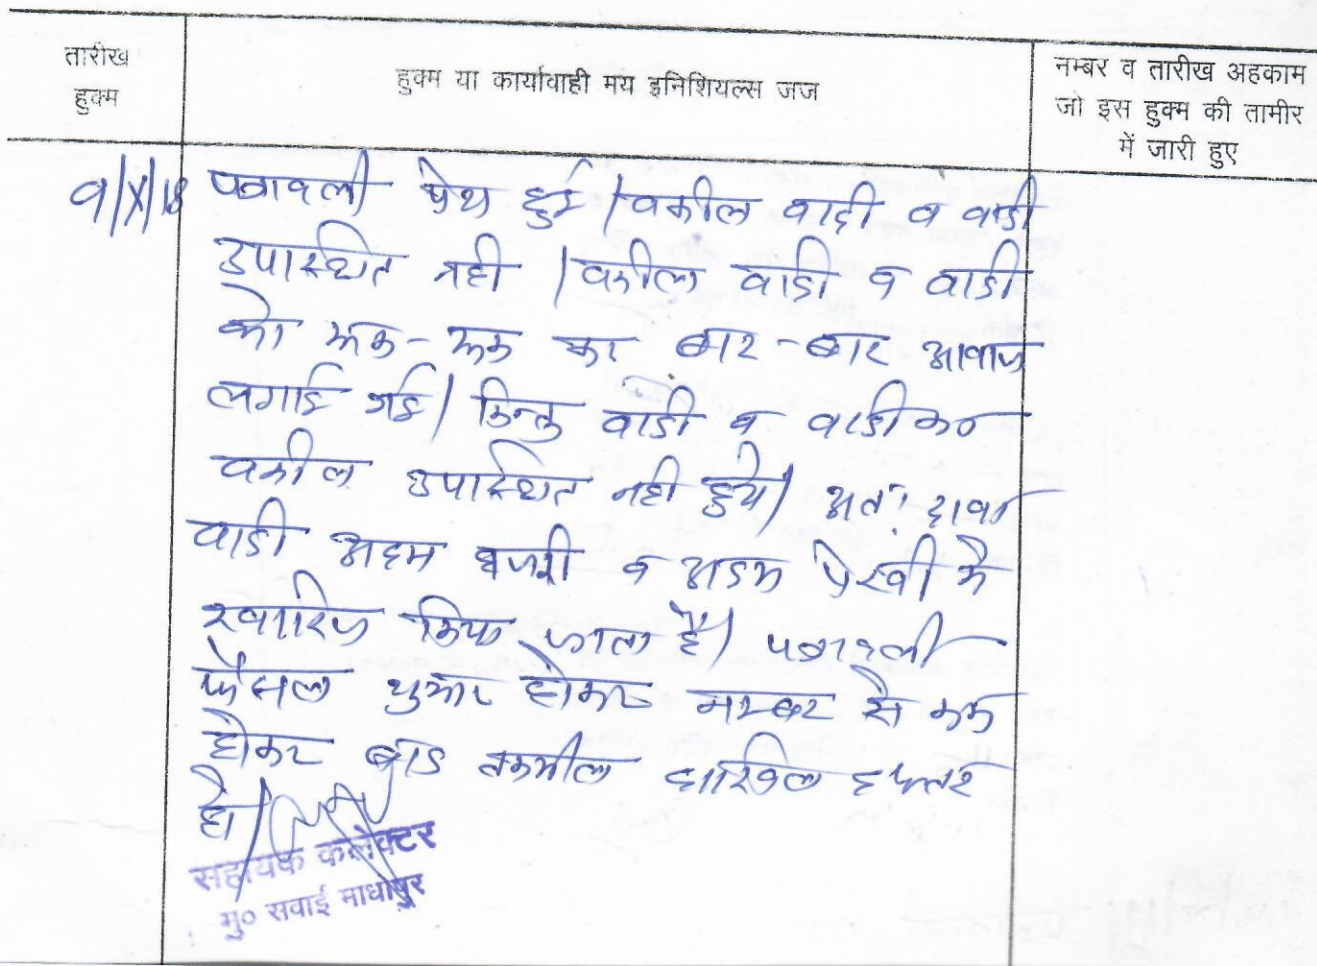 तारीख
हुक्म
हुक्म या कार्यावाही मय इनिशियल्स जज
नम्बर व तारीख अहकाम
जो इस हुक्म की तामीर
में जारी हुए
9/X/18 पत्रावली पेश हुई। वकील वादी व वादी
उपास्थित नही। वकील वादी व वादी
को एक-एक कर बार-बार आवाज
लगाई गई। किन्तु वादी व वादी का
वकील उपास्थित नही हुये। अतः दावा
वादी अदम हाजरी व अदम पेरवी मे
खारिज किया जाता है। पत्रावली
फैसल शुमार होकर नम्बर से कम
होकर बाद तकमील दाखिल दफ्तर
हो।
सहायक कलेक्टर
मु० सवाई माधोपुर